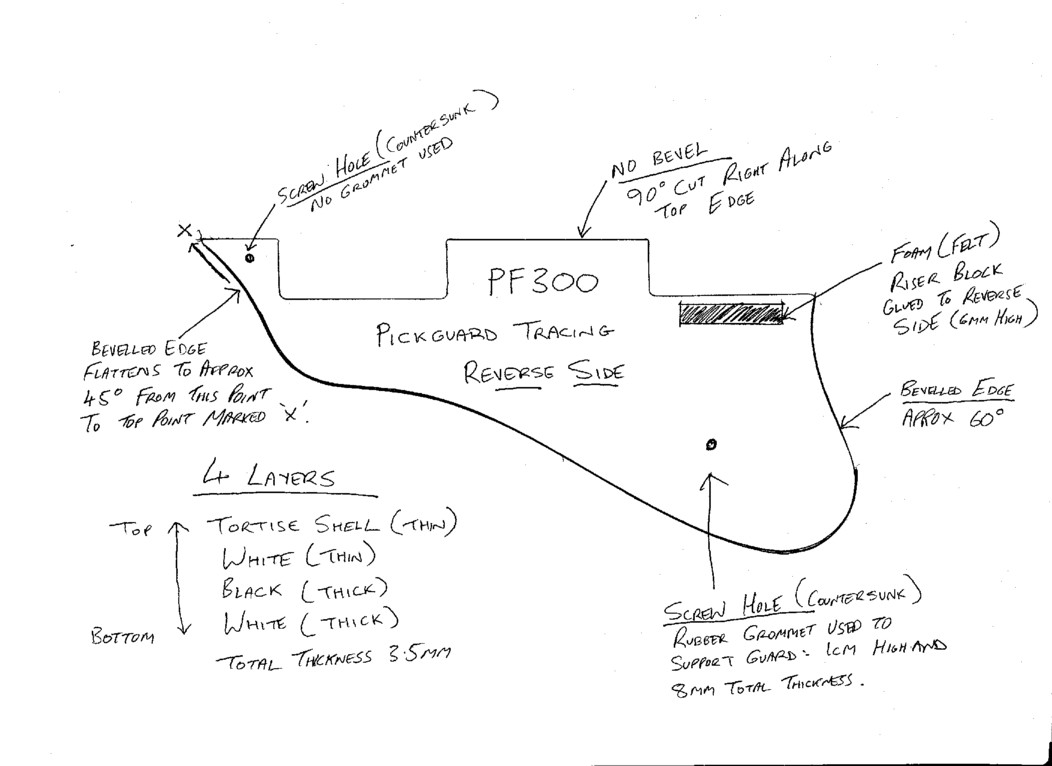 SCREW HOLE (COUNTERSUNK)
NO GROMMET USED
NO BEVEL
90° CUT RIGHT ALONG
TOP EDGE
X
PF300
PICKGUARD TRACING
REVERSE SIDE
FOAM (FELT)
RISER BLOCK
GLUED TO REVERSE
SIDE (6MM HIGH)
BEVELLED EDGE
FLATTENS TO APPROX
45° FROM THIS POINT
TO TOP POINT MARKED 'X'.
BEVELLED EDGE
APPROX 60°
4 LAYERS
TOP
TORTISE SHELL (THIN)
WHITE (THIN)
BLACK (THICK)
WHITE (THICK)
BOTTOM
TOTAL THICKNESS 3.5MM
SCREW HOLE (COUNTERSUNK)
RUBBER GROMMET USED TO
SUPPORT GUARD: 1CM HIGH AND
8MM TOTAL THICKNESS.